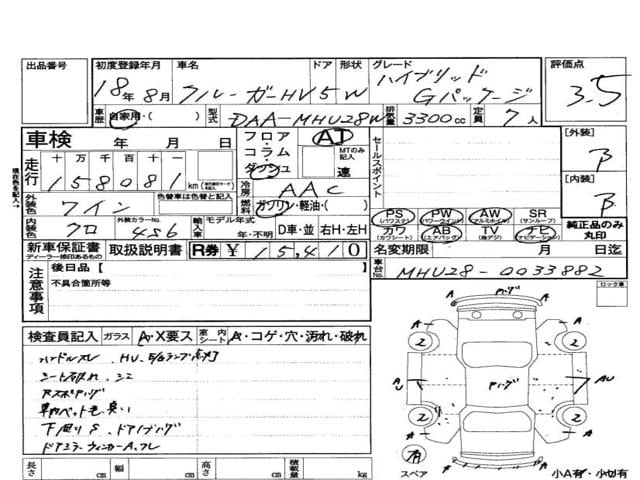 出品番号
初度登録年月 車名 ドア 形状 グレード 評価点
18年 8月 クルーガーHV 5 W ハイブリッド
Gパッケージ 3.5
車歴 自家用・( ) 型式 DAA-MHU28W 排気量 3300cc 定員 7人
車検 年 月 日
フロア・コラム・ダッシュ AT MTのみ記入 速
走行 十万千百十一
158081 km
冷房 AAC
セールスポイント
[外装] B
[内装] B
外装色 ワイン 色替車は色替と記入 燃料 ガソリン・軽油・( )
内装色 クロ 外装カラーNo. 4S6 輸入車 モデル年式 年・不明 D車・並 右H・左H
PS (パワステ) PW (パワーウインド) AW (アルミホイル) SR (サンルーフ)
カワ (カワシート) AB (エアバッグ) TV (地デジ) ナビ (ナビゲーション)
純正品のみ丸印
新車保証書 ディーラー捺印あるもの 取扱説明書 R券 ¥ 15,410
名変期限 月 日迄
車台No. MHU28-0033882
注意事項 後日品 [ ]
不具合箇所等
ロック車
検査員記入 ガラス A・X要ス 室内シート A・コゲ・穴・汚れ・破れ
ハンドルスレ、HV、E/Gランプ点灯
シート破れ、シミ
下廻りS、ドアパッチング
ドアミラーウィンカーA、フレ
A A
2 2
A U AU
2 2
A A
有
スペア
小A有・小切有
長さ cm 幅 cm 高さ cm 積載量 kg